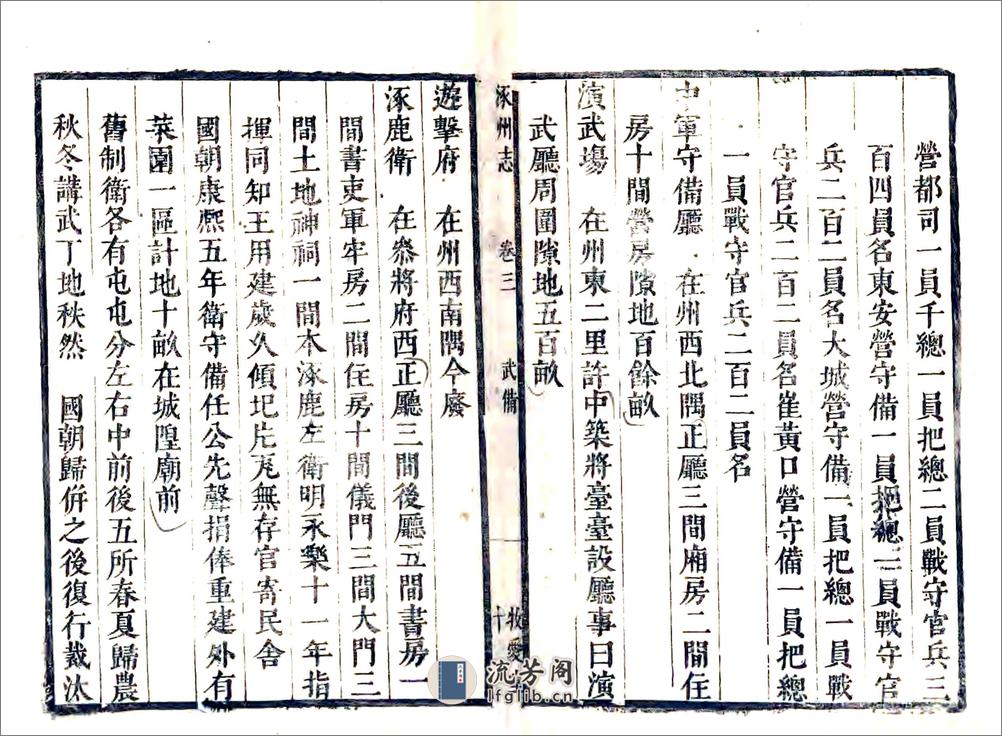 營都司一員千總一員把總二員戰守官兵三
百四員名東安營守備一員把總二員戰守官
兵二百二員名大城營守備一員把總一員戰
守官兵二百二員名崔黃口營守備一員把總
一員戰守官兵二百二員名
中軍守備廳 在州西北隅正廳三間廂房二間住
房十間營房隙地百餘畝
演武場 在州東二里許中築將臺臺設廳事曰演
武廳周圍隙地五百畝
涿州志 卷三 武備 十 牧愛
遊擊府 在州西南隅今廢
涿鹿衛 在叅將府西正廳三間後廳五間書房一
間書吏軍牢房二間住房十間儀門三間大門三
間土地神祠一間本涿鹿左衛明永樂十一年指
揮同知王用建歲久傾圮片瓦無存官寄民舍
國朝康熙五年衛守備任公先聲捐俸重建外有
菜園一區計地十畝在城隍廟前
舊制衛各有屯屯分左右中前後五所春夏歸農
秋冬講武丁地秩然 國朝歸併之後復行裁汰
流芳阁
lfglib.cn